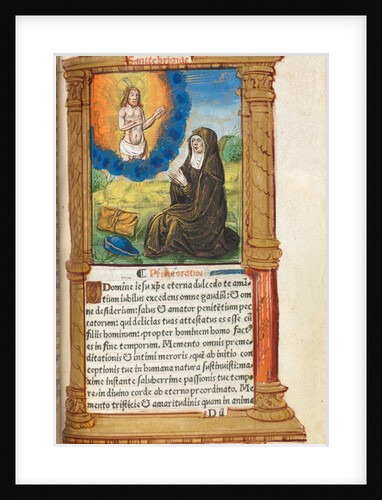 Sancte brigide
¶ Prima oratio
O Domine iesu xp̄e eterna dulcedo te amā
tium iubilus excedens omne gaudiū: ⁊ om
ne desiderium: salus ⁊ amator penitētium pec
catorum: qui delicias tuas attestatus es esse cū
filiis hominum: propter hominem homo fact᾿
es in fine temporum. Memento omnis preme
ditationis ⁊ intimi meroris, quē ab initio con
ceptionis tue in humana natura sustinuisti: ma
xime instante saluberrime passionis tue tempo
re, in diuino corde ab eterno preordinato. Me
mento tristicie ⁊ amaritudinis quam in anima
D ii